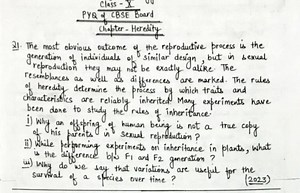 Class - X
PYQ of CBSE Board
Chapter - Heredity
Q1. The most obvious outcome of the reproductive process is the
generation of individuals of similar design, but in sexual
reproduction they may not be exactly alike. The
resemblances as well as differences are marked. The rules
of heredity determine the process by which traits and
characteristics are reliably inherited. Many experiments have
been done to study the rules of inheritance.
i) Why an offspring of human being is not a true copy
of his parents in sexual reproduction?
ii) While performing experiments on inheritance in plants, what
is the difference b/w F1 and F2 generation?
iii) Why do we say that variations are useful for the
survival of a species over time? (2023)